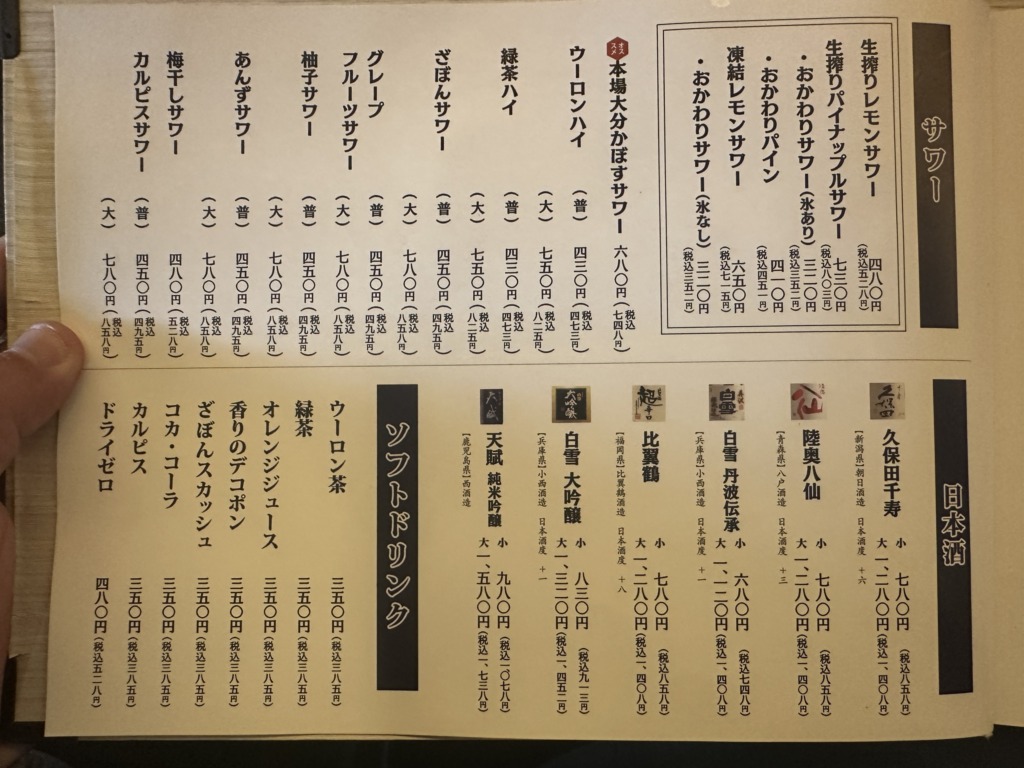 サワー
生搾りレモンサワー 四八〇円(税込五二八円)
生搾りパイナップルサワー 七三〇円(税込八〇三円)
・おかわりサワー(氷あり) 三二〇円(税込三五二円)
・おかわりパイン 四一〇円(税込四五一円)
凍結レモンサワー 六五〇円(税込七一五円)
・おかわりサワー(氷なし) 三二〇円(税込三五二円)
オススメ 本場大分かぼすサワー 六八〇円(税込七四八円)
ウーロンハイ (普) 四三〇円(税込四七三円)
(大) 七五〇円(税込八二五円)
緑茶ハイ (普) 四三〇円(税込四七三円)
(大) 七五〇円(税込八二五円)
ざぼんサワー (普) 四五〇円(税込四九五円)
(大) 七八〇円(税込八五八円)
グレープフルーツサワー (普) 四五〇円(税込四九五円)
(大) 七八〇円(税込八五八円)
柚子サワー (普) 四五〇円(税込四九五円)
(大) 七八〇円(税込八五八円)
あんずサワー (普) 四五〇円(税込四九五円)
(大) 七八〇円(税込八五八円)
梅干しサワー 四八〇円(税込五二八円)
カルピスサワー (普) 四五〇円(税込四九五円)
(大) 七八〇円(税込八五八円)
日本酒
久保田
久保田千寿 小 七八〇円(税込八五八円)
[新潟県]朝日酒造 日本酒度 +六 大 一、二八〇円(税込一、四〇八円)
八仙
陸奥八仙 小 七八〇円(税込八五八円)
[青森県]八戸酒造 日本酒度 +三 大 一、二八〇円(税込一、四〇八円)
白雪
白雪 丹波伝承 小 六八〇円(税込七四八円)
[兵庫県]小西酒造 日本酒度 +一 大 一、一二〇円(税込一、四〇八円)
超辛口
比翼鶴 小 七八〇円(税込八五八円)
[福岡県]比翼鶴酒造 日本酒度 +八 大 一、二八〇円(税込一、四〇八円)
大吟醸
白雪 大吟醸 小 八三〇円(税込九一三円)
[兵庫県]小西酒造 日本酒度 +一 大 一、三二〇円(税込一、四五二円)
天賦 純米吟醸 小 九八〇円(税込一、〇七八円)
[鹿児島県]西酒造 大 一、五八〇円(税込一、七三八円)
ソフトドリンク
ウーロン茶 三五〇円(税込三八五円)
緑茶 三五〇円(税込三八五円)
オレンジジュース 三五〇円(税込三八五円)
香りのデコポン 三五〇円(税込三八五円)
ざぼんスカッシュ 三五〇円(税込三八五円)
コカ・コーラ 三五〇円(税込三八五円)
カルピス 三五〇円(税込三八五円)
ドライゼロ 四八〇円(税込五二八円)